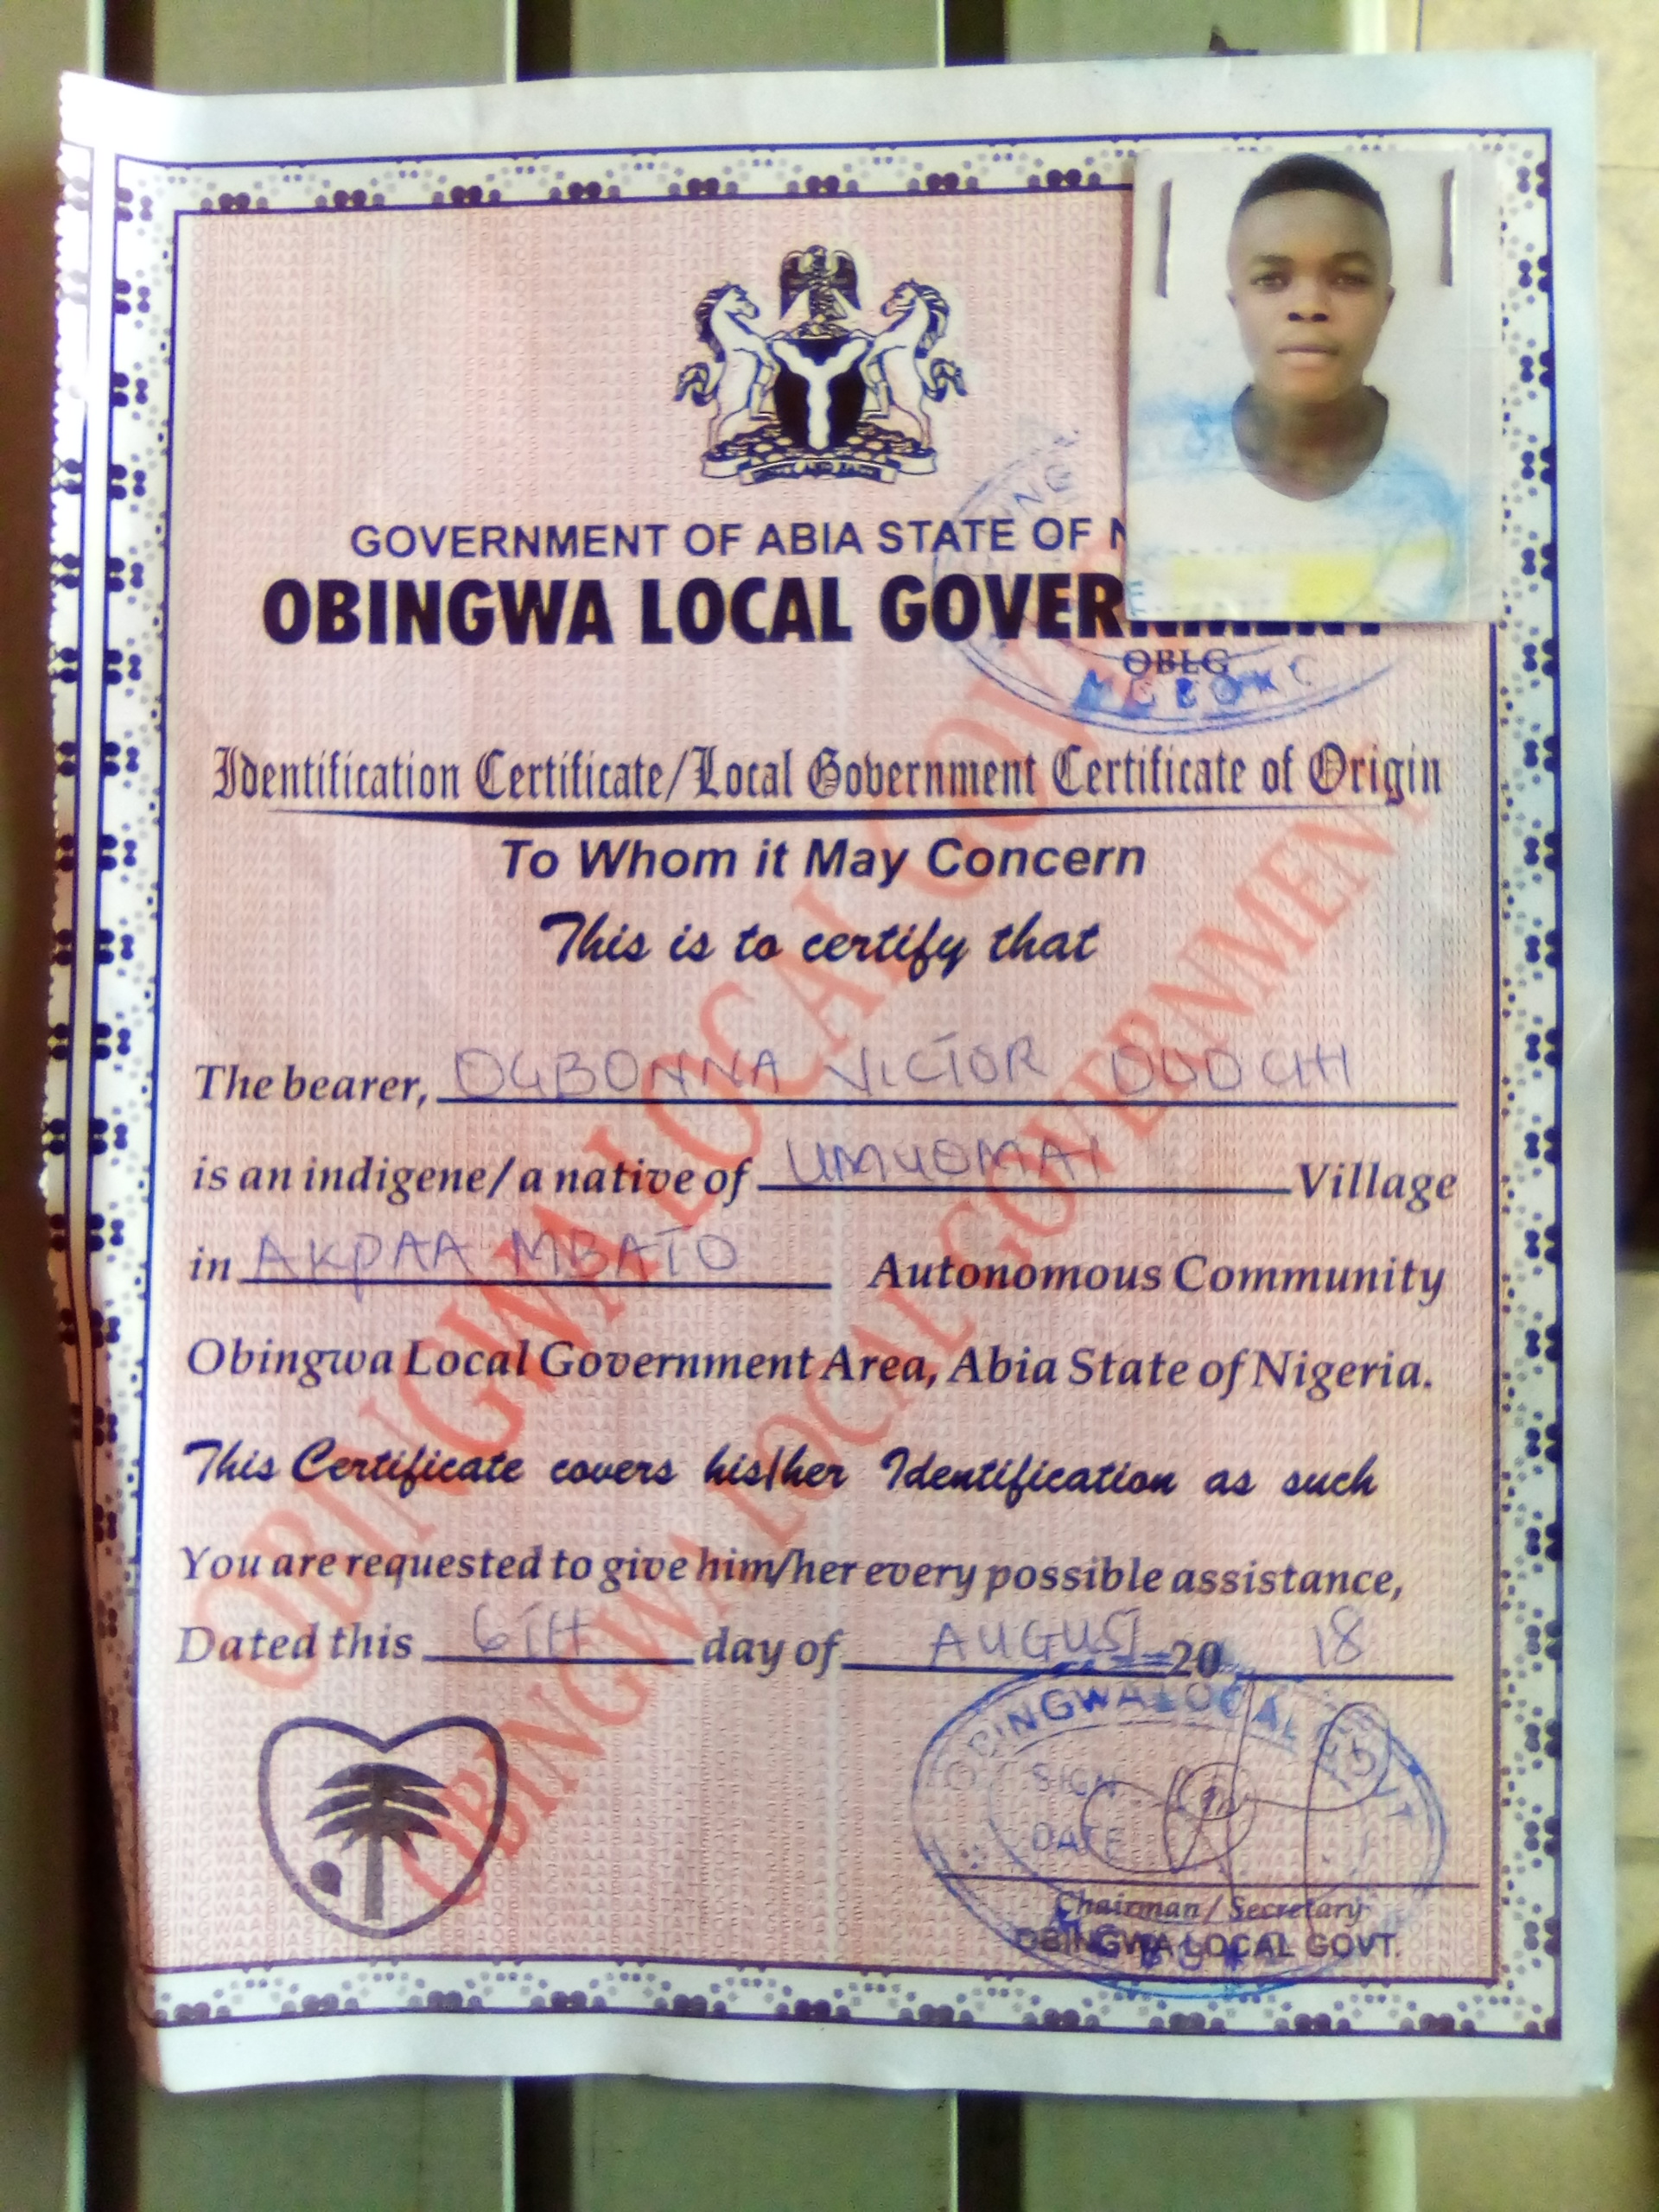 GOVERNMENT OF ABIA STATE OF N
OBINGWA LOCAL GOVERNMENT
OBLG
Identification Certificate/Local Government Certificate of Origin
To Whom it May Concern
This is to certify that
The bearer, OGBONNA VICTOR
is an indigene/a native of UMUOMAI Village
in AKPAA MBATO Autonomous Community
Obingwa Local Government Area, Abia State of Nigeria.
This Certificate covers his/her Identification as such
You are requested to give him/her every possible assistance,
Dated this 6TH day of AUGUST 20 18
OBINGWA LOCAL GOVT
SIGN
DATE
Chairman / Secretary
OBINGWA LOCAL GOVT.
OBINGWA LOCAL GOVERNMENT
OBINGWA LOCAL GOVERNMENT